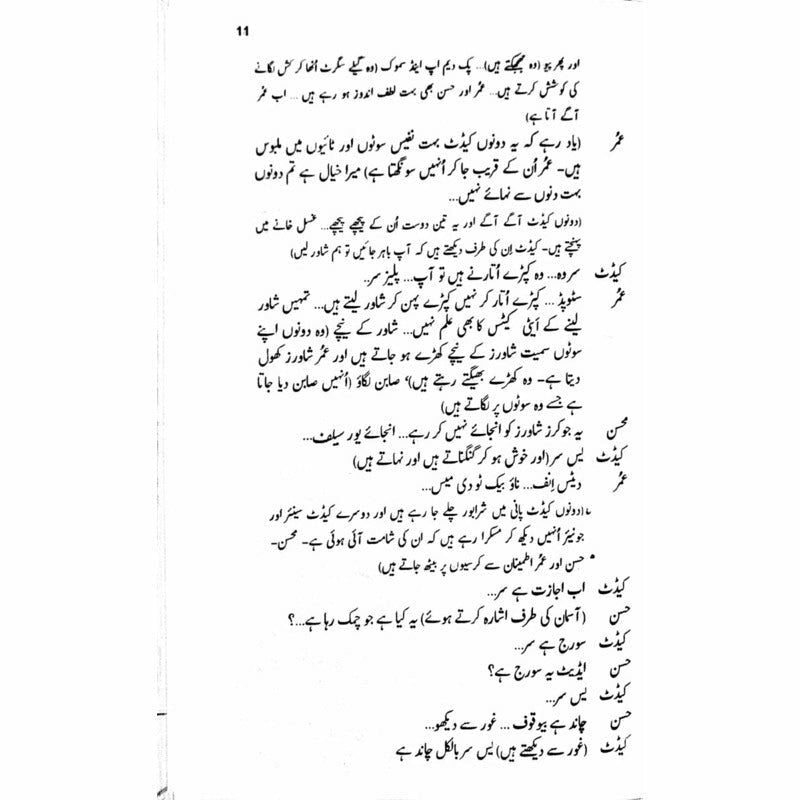 11
اور پھر پیچ (وہ جھجکتے ہیں)... پک دیم اپ اینڈ سموک (وہ گیلے سگرٹ اُٹھا کر کش لگانے
کی کوشش کرتے ہیں... عمُر اور حسن بھی بہت لطف اندوز ہو رہے ہیں ... اب عمُر
آگے آتا ہے)
عمُر (یاد رہے کہ یہ دونوں کیڈٹ بہت نفیس سوٹوں اور ٹائیوں میں ملبوس
ہیں- عمُر اُن کے قریب جا کر اُنہیں سونگھتا ہے) میرا خیال ہے تم دونوں
بہت دنوں سے نہائے نہیں...
(دونوں کیڈٹ آگے آگے اور یہ تین دوست اُن کے پیچھے پیچھے... غسل خانے میں
پہنچتے ہیں- کیڈٹ اِن کی طرف دیکھتے ہیں کہ آپ باہر جائیں تو ہم شاور لیں)
کیڈٹ سر وہ... وہ کپڑے اُتارنے ہیں تو آپ... پلیز سر..
عمُر سٹوپڈ ... کپڑے اُتار کر نہیں کپڑے پہن کر شاور لیتے ہیں... تمہیں شاور
لینے کے اَیٹی کیٹس کا بھی علم نہیں... شاور کے نیچے (وہ دونوں اپنے
سوٹوں سمیت شاورز کے نیچے کھڑے ہو جاتے ہیں اور عمُر شاورز کھول
دیتا ہے- وہ کھڑے بھیگتے رہتے ہیں)، صابن لگاؤ (اُنہیں صابن دیا جاتا
ہے جسے وہ سوٹوں پر لگاتے ہیں)
محسن یہ جوکرز شاورز کو انجائے نہیں کر رہے... انجائے یور سیلف...
کیڈٹ یس سر (اور خوش ہو کر گنگناتے ہیں اور نہاتے ہیں)
عمُر دیٹس اِنف... ناؤ بیک ٹو دی میس...
(دونوں کیڈٹ پانی میں شرابور چلے جا رہے ہیں اور دوسرے کیڈٹ سینئر اور
جونیئر اُنہیں دیکھ کر مسکرا رہے ہیں کہ ان کی شامت آئی ہوئی ہے- محسن-
حسن اور عمُر اطمینان سے کرسیوں پر بیٹھ جاتے ہیں)
کیڈٹ اب اجازت ہے سر...
حسن (آسمان کی طرف اشارہ کرتے ہوئے) یہ کیا ہے جو چمک رہا ہے...؟
کیڈٹ سورج ہے سر...
حسن ایڈیٹ یہ سورج ہے؟
کیڈٹ یس سر...
حسن چاند ہے بیوقوف ... غور سے دیکھو...
کیڈٹ (غور سے دیکھتے ہیں) یس سر بالکل چاند ہے